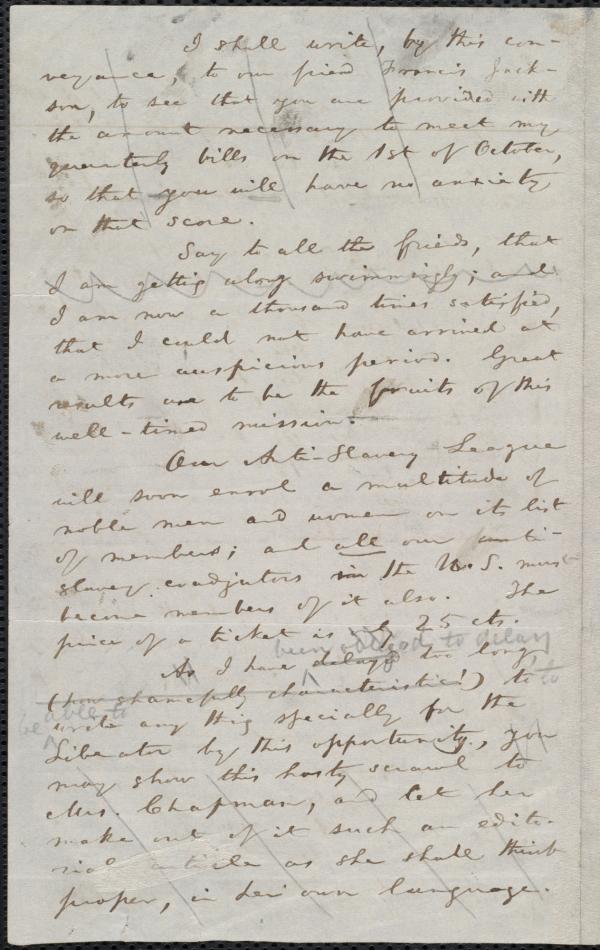 I shall write, by this con-
veyance, to our friend Francis Jack-
son, to see that you are provided with
the amount necessary to meet my
quarterly bills on the 1st of October,
so that you will have no anxiety
on that score.
Say to all the friends, that
I am getting along swimmingly; and
I am now a thousand times satisfied,
that I could not have arrived at
a more auspicious period. Great
results are to be the fruits of this
well-timed mission.
Our Anti-Slavery League
will soon enrol a multitude of
noble men and women on its list
of members; and all our anti-
slavery coadjutors in the U. S. must
become members of it also. The
price of a ticket is only 25 cts.
been obliged to delay
As I have delayed too long
(how shamefully characteristic!) to
to
be able to
write any thing specially for the
Liberator by this opportunity, you
may show this hasty scrawl to
Mrs. Chapman, and let her
make out of it such an edito-
rial article as she shall think
proper, in her own language.